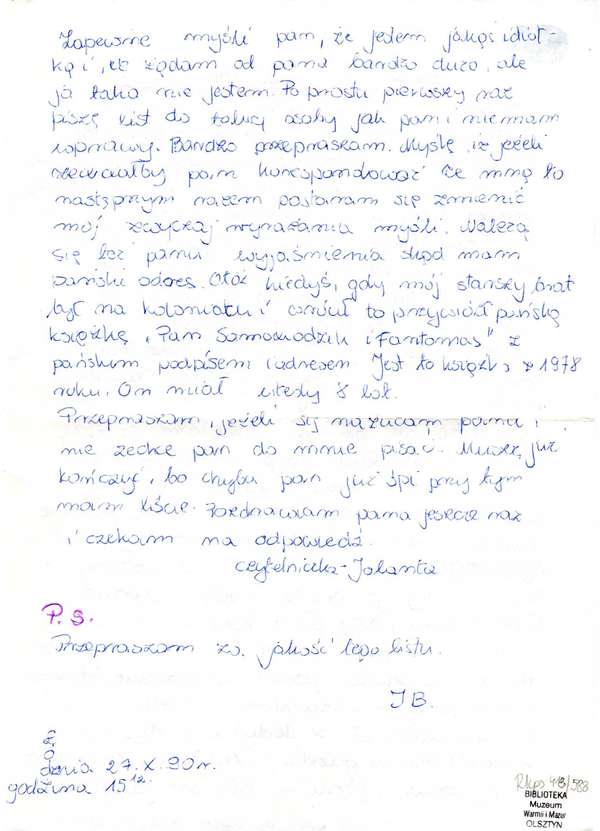 Zapewne myśli pan, że jedem jakąś idiot-
ką i, że żądam od pana bardzo dużo, ale
ja taka nie jestem. Po prostu pierwszy raz
piszę list do takiej osoby jak pan i nie mam
wprawy. Bardzo przepraszam. Myślę, iż jeżeli
zechciałby pan korespondować ze mną to
następnym razem postaram się zmienić
mój zwyczaj wyrażania myśli. Należą
się też panu wyjaśnienia skąd mam
pański adres. Otóż kiedyś, gdy mój starszy brat
był na koloniach i wrócił to przywiózł pańską
książkę „Pan Samochodzik i Fantomas" z
pańskim podpisem i adresem. Jest to książka z 1978
roku. On miał wtedy 8 lat.
Przepraszam, jeżeli się narzucam panu i
nie zechce pan do mnie pisać. Muszę już
kończyć, bo chyba pan już śpi przy tym
moim liście. Pozdrawiam pana jeszcze raz
i czekam na odpowiedź.
czytelniczka - Jolanta
P.S.
Przepraszam za jakość tego listu.
J B.
dnia 27.X.90r.
godzina 15 12.
Rkps 413/583
BIBLIOTEKA
Muzeum
Warmii i Mazur
OLSZTYN